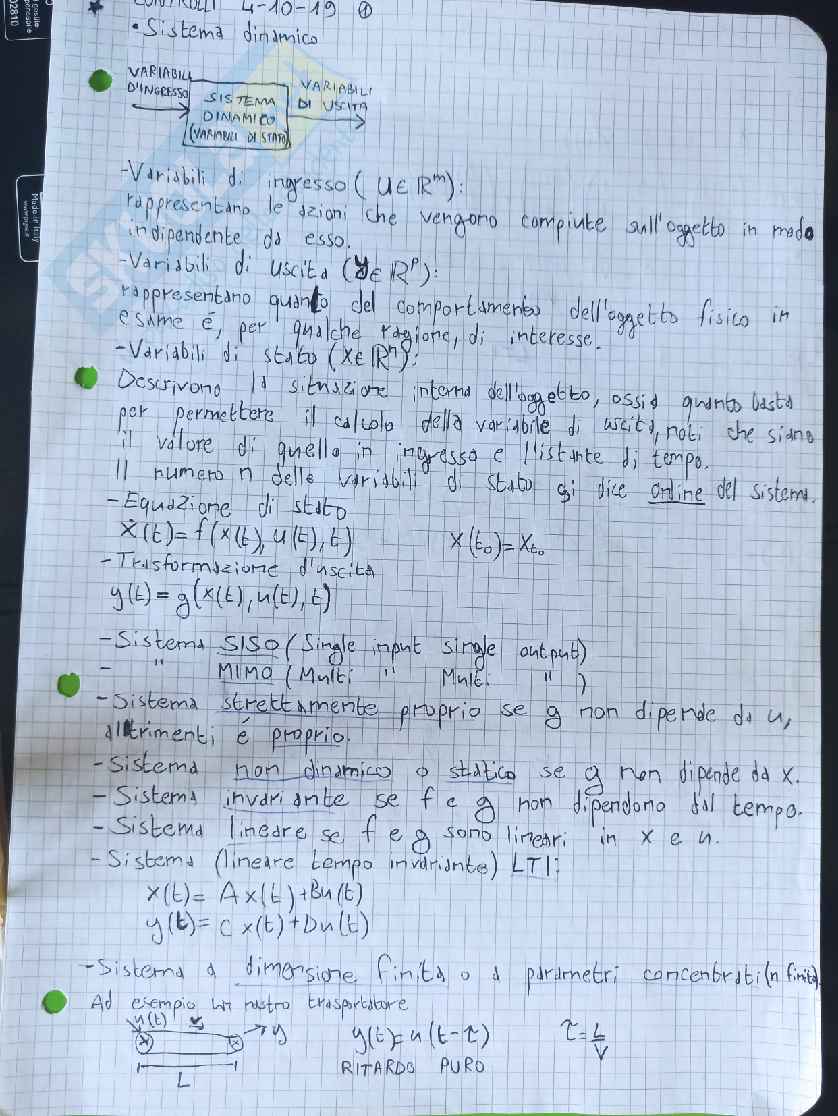 CONTROLLI 4-10-19 ①
• Sistema dinamico
VARIABILI D'INGRESSO
SISTEMA DINAMICO (VARIABILI DI STATO)
VARIABILI DI USCITA
-Variabili di ingresso (U∈ℝᵐ):
rappresentano le azioni che vengono compiute sull'oggetto in modo
indipendente da esso.
-Variabili di uscita (y∈ℝᵖ):
rappresentano quanto del comportamento dell'oggetto fisico in
esame é, per qualche ragione, di interesse.
-Variabili di stato (x∈ℝⁿ):
Descrivono la situazione interna dell'oggetto, ossia quanto basta
per permettere il calcolo della variabile di uscita, noti che siano
il valore di quella in ingresso e l'istante di tempo.
Il numero n delle variabili di stato si dice ordine del sistema.
-Equazione di stato
ẋ(t)=f(x(t),u(t),t) x(t₀)=xt₀
-Trasformazione d'uscita
y(t)=g(x(t),u(t),t)
-Sistema SISO (Single input single output)
- " MIMO (Multi " Multi " )
-Sistema strettamente proprio se g non dipende da u,
altrimenti é proprio.
-Sistema non dinamico o statico se g non dipende da x.
-Sistema invariante se f e g non dipendono dal tempo.
-Sistema lineare se f e g sono lineari in x e u.
-Sistema (lineare tempo invariante) LTI:
x(t)= Ax(t)+Bu(t)
y(t)= Cx(t)+Du(t)
-Sistema a dimensione finita o a parametri concentrati (n finito).
Ad esempio un nastro trasportatore
u(t) y y(t)=u(t-τ) τ=L/V
L RITARDO PURO
Made in Italy
02810